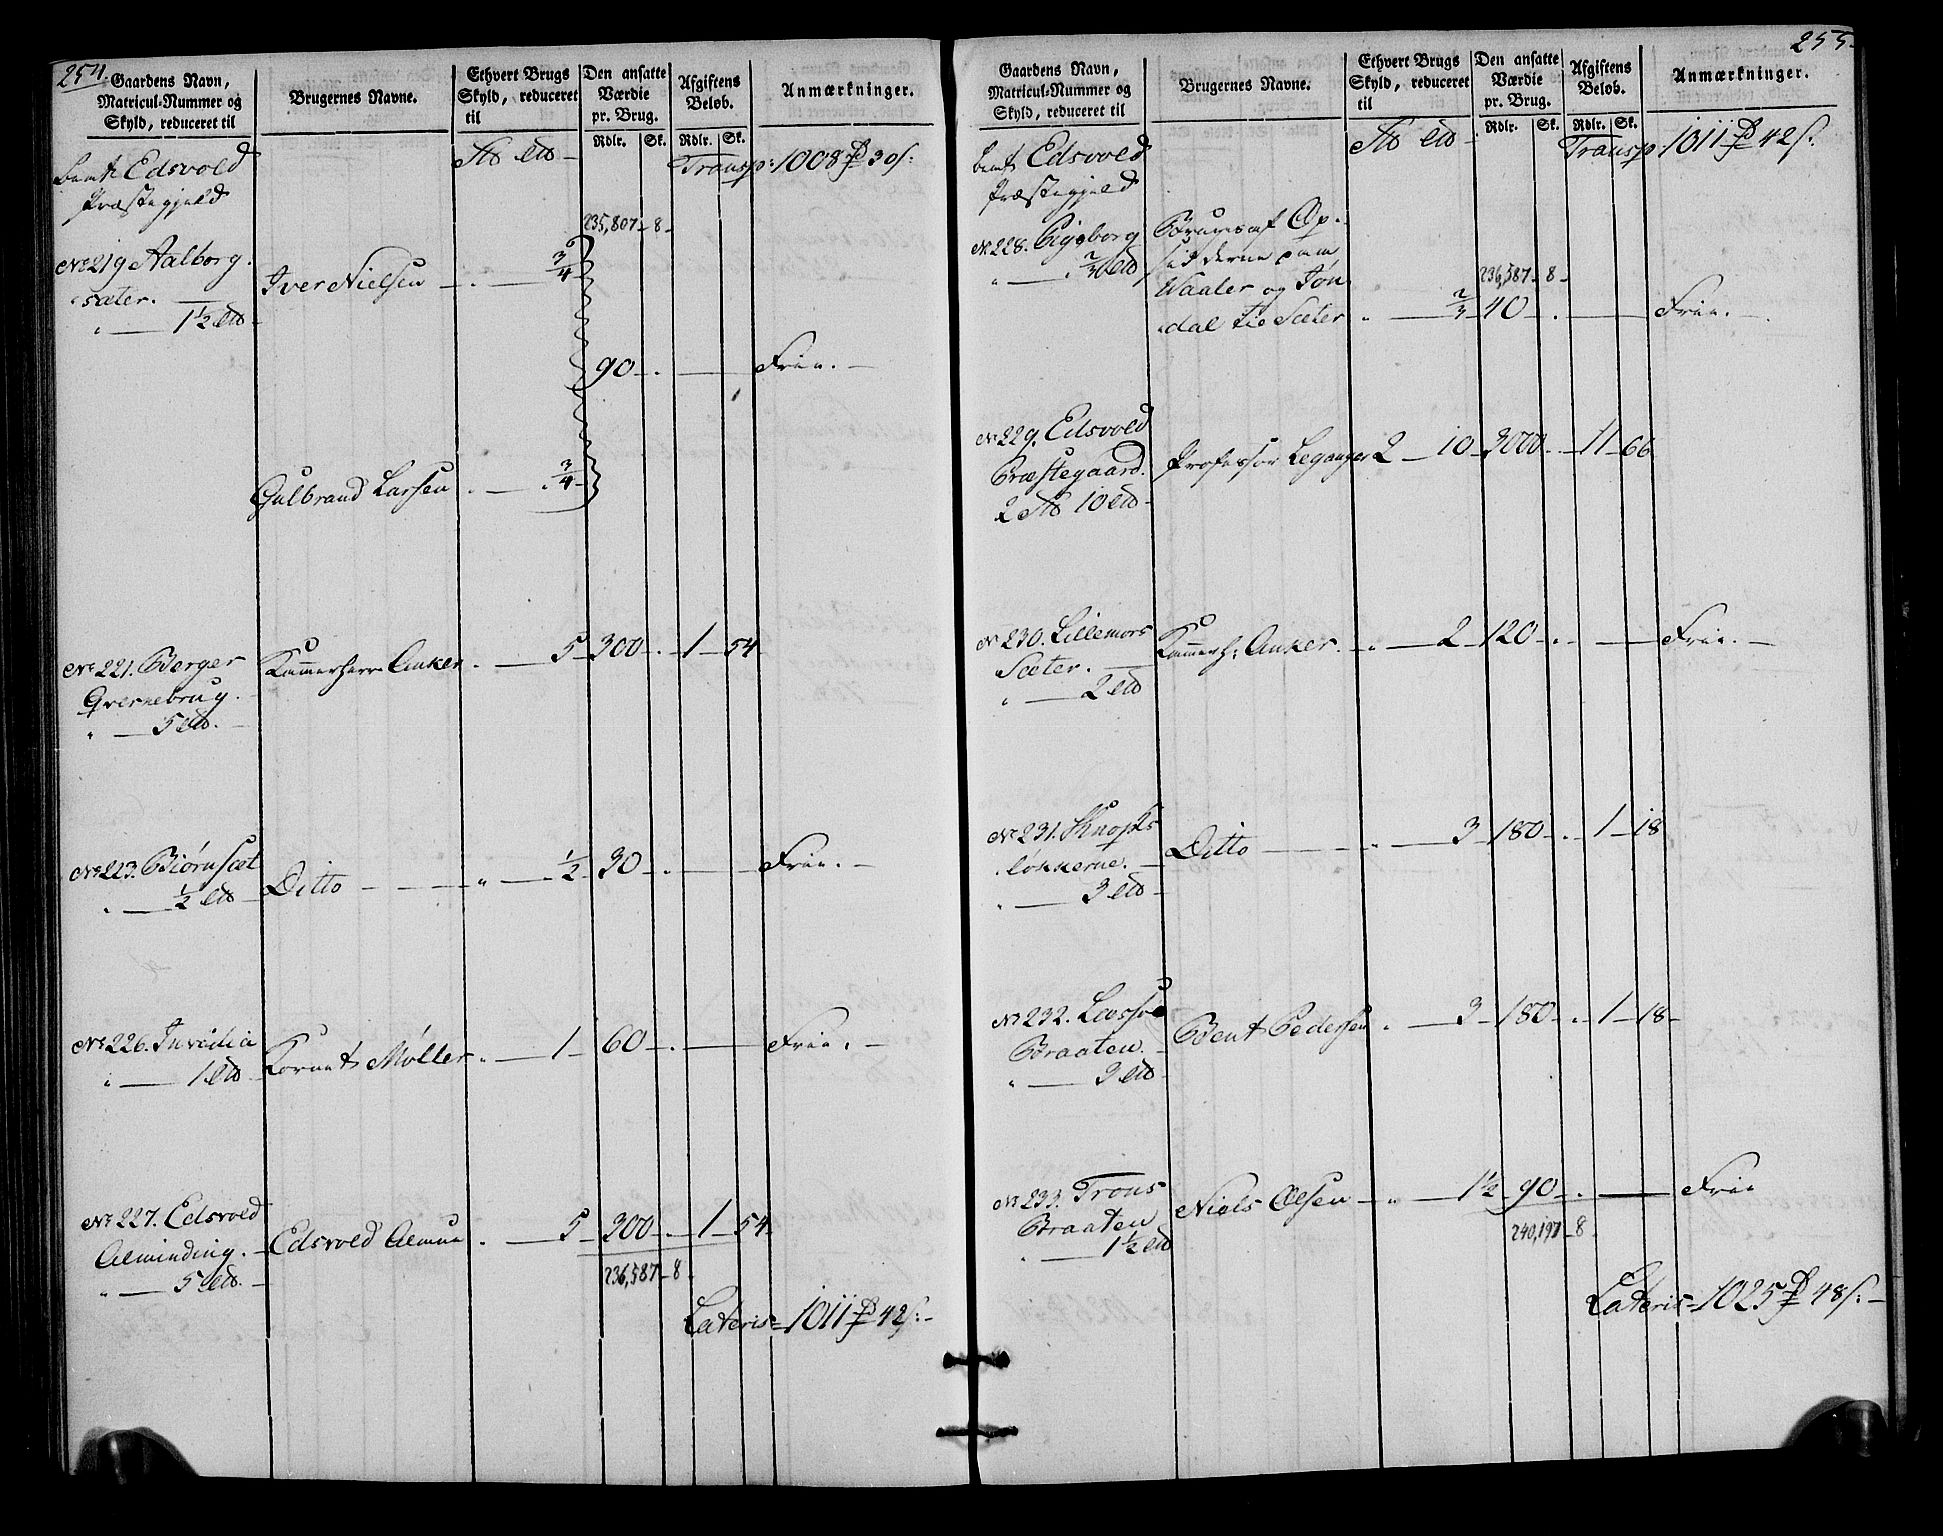 254.
Gaardens Navn,
Matricul-Nummer og
Skyld, reduceret til
Brugernes Navne.
Ethvert Brugs
Skyld, reduceret
til
Den ansatte
Værdie
pr. Brug.
Rdlr. Sk.
Afgiftens
Beløb.
Rdlr. Sk.
Anmærkninger.
Edsvold
Præstegjeld
Transp: 1008 30 s:
235,807 - 8 -
No 219 Aalborg
sæter.
" — 1 1/2
Iver Nielsen — 3/4
90 - . — Frie. —
Gulbrand Larsen . — 3/4
No 221. Berger
Qvernebrug.
" — 5
Kammerherr Anker . — 5 - 300 - . - 1 - 54
No 223. Biørnsæt
" — 1/2
Ditto — " — 1/2 - 30 - . — Frie. —
No 226. Invidia
" — 1
Kornet Møller . — 1 - 60 - . — Frie. —
No 227. Edsvold
Alminding.
" — 5
Edsvold Almue . — 5 - 300 - . - 1 - 54
236,587 - 8 -
Lateris = 1011 42 s: -
255.
Gaardens Navn,
Matricul-Nummer og
Skyld, reduceret til
Brugernes Navne.
Ethvert Brugs
Skyld, reduceret
til
Den ansatte
Værdie
pr. Brug.
Rdlr. Sk.
Afgiftens
Beløb.
Rdlr. Sk.
Anmærkninger.
Edsvold
Præstegjeld
Transp: 1011 42 s.
No 228.
" — 2/3
Bruges af Op-
sidderne paa
Waaler og Jøn
dal til Sæter
236,587 - 8 -
" — 2/3 - 40 - . — Frie. —
No 229. Edsvold
Præstegaard.
2 10
Professor Leganger 2 - 10 - 3000 - . - 11 - 66
No 230. Lillemors
Sæter. —
" — 2
Kammerh: Anker. - " — 2 - 120 - . — Frie. —
No 231.
løkkerne. —
" — 3
Ditto — " — 3 - 180 - . - 1 - 18
No 232.
Braaten. —
" — 3
Bent Pedersen . — 3 - 180 - . - 1 - 18 -
No 233. Trons
Braaten
" — 1 1/2
Niels Olsen — " — 1 1/2 - 90 - . — Frie
240,197 - 8
Lateris = 1025 48 s. -